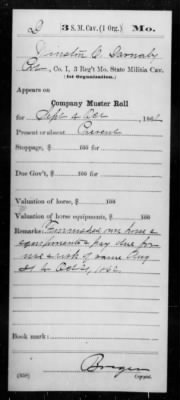 D | 3 S. M. Cav. (1 Org.) | Mo.
Winston O.
Co. I, 3 Reg't Mo. State Militia Cav.
(1st Organization.)
Appears on
Company Muster Roll
for Sept & Oct, 186
Present or absent Present
Stoppage, $ 100 for
Due Gov't, $ 100 for
Valuation of horse, $ 100
Valuation of horse equipments, $ 100
Remarks: Furnished own horse &
equipments & pay due for
use & risk of same Aug
to Oct 31, 1862.
Book mark:
(358)
Copyist.